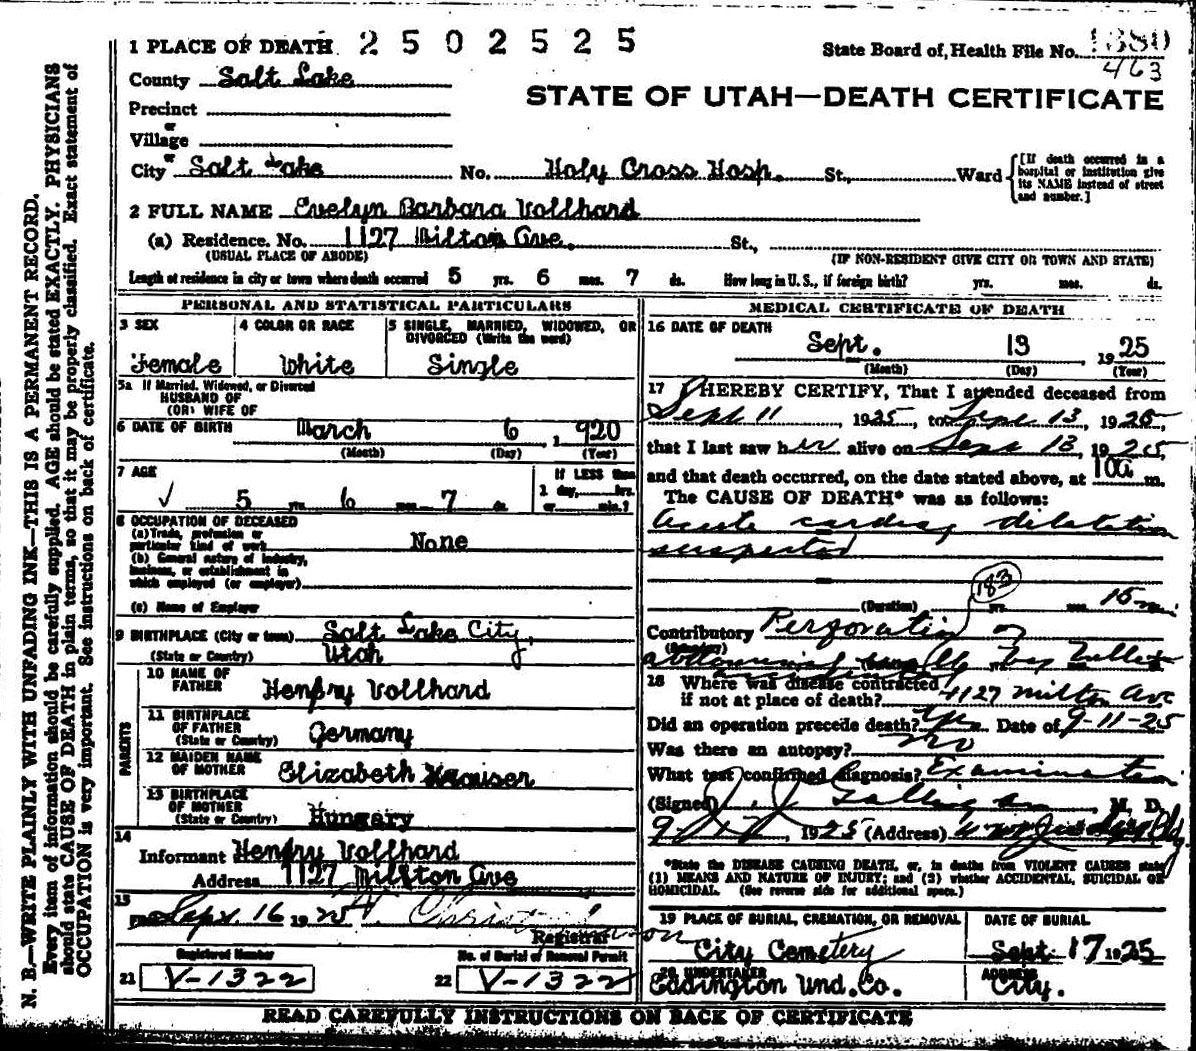 1 PLACE OF DEATH 2502525
State Board of Health File No. 1380
463
County Salt Lake
STATE OF UTAH—DEATH CERTIFICATE
Precinct
or
Village
or
City Salt Lake No. Holy Cross Hosp. St., Ward [If death occurred in a hospital or institution give its NAME instead of street and number.]
2 FULL NAME Evelyn Barbara Vollhard
(a) Residence. No. 1127 Milton Ave. St.,
(USUAL PLACE OF ABODE) (IF NON-RESIDENT GIVE CITY OR TOWN AND STATE)
Length of residence in city or town where death occurred 5 yrs. 6 mos. 7 ds. How long in U. S., if foreign birth? yrs. mos. ds.
PERSONAL AND STATISTICAL PARTICULARS
3 SEX
Female
4 COLOR OR RACE
White
5 SINGLE, MARRIED, WIDOWED, OR DIVORCED (Write the word)
Single
5a If Married, Widowed, or Divorced
HUSBAND OF
(OR) WIFE OF
6 DATE OF BIRTH March 6 1920
(Month) (Day) (Year)
7 AGE
5 yrs. 6 mos. 7 ds.
If LESS than
1 day, hrs.
or min.?
8 OCCUPATION OF DECEASED
(a) Trade, profession or
particular kind of work None
(b) General nature of industry,
business, or establishment in
which employed (or employer)
(c) Name of Employer
9 BIRTHPLACE (City or town) Salt Lake City,
(State or Country) Utah
PARENTS
10 NAME OF FATHER Henry Vollhard
11 BIRTHPLACE OF FATHER (State or Country) Germany
12 MAIDEN NAME OF MOTHER Elizabeth Krauser
13 BIRTHPLACE OF MOTHER (State or Country) Hungary
14
Informant Henry Vollhard
Address 1127 Milton Ave
15
Sept 16 1925
Registrar
Registered Number
21 V-1322
No. of Burial or Removal Permit
22 V-1322
MEDICAL CERTIFICATE OF DEATH
16 DATE OF DEATH
Sept. 13 1925
(Month) (Day) (Year)
17 I HEREBY CERTIFY, That I attended deceased from
Sept 11 1925, to Sept 13, 1925,
that I last saw her alive on Sept 13, 1925,
and that death occurred, on the date stated above, at m.
The CAUSE OF DEATH* was as follows:
Acute cardiac dilatation
suspected
183
(Duration) yrs. mos. 15 min.
Contributory Perforation of
abdominal by bullet
18 Where was disease contracted
if not at place of death? 1127 Milton Ave
Did an operation precede death? yes Date of 9-11-25
Was there an autopsy? no
What test confirmed diagnosis? Examination
(Signed) J. J. Galligan, M. D.
1925 (Address)
*State the DISEASE CAUSING DEATH, or, in deaths from VIOLENT CAUSES state
(1) MEANS AND NATURE OF INJURY; and (2) whether ACCIDENTAL, SUICIDAL OR
HOMICIDAL. (See reverse side for additional space.)
19 PLACE OF BURIAL, CREMATION, OR REMOVAL
City Cemetery
DATE OF BURIAL
Sept. 17 1925
20 UNDERTAKER
Eddington Und. Co.
ADDRESS
City.
READ CAREFULLY INSTRUCTIONS ON BACK OF CERTIFICATE
N. B.—WRITE PLAINLY WITH UNFADING INK—THIS IS A PERMANENT RECORD.
Every item of information should be carefully supplied. AGE should be stated EXACTLY. PHYSICIANS
should state CAUSE OF DEATH in plain terms, so that it may be properly classified. Exact statement of
OCCUPATION is very important. See instructions on back of certificate.